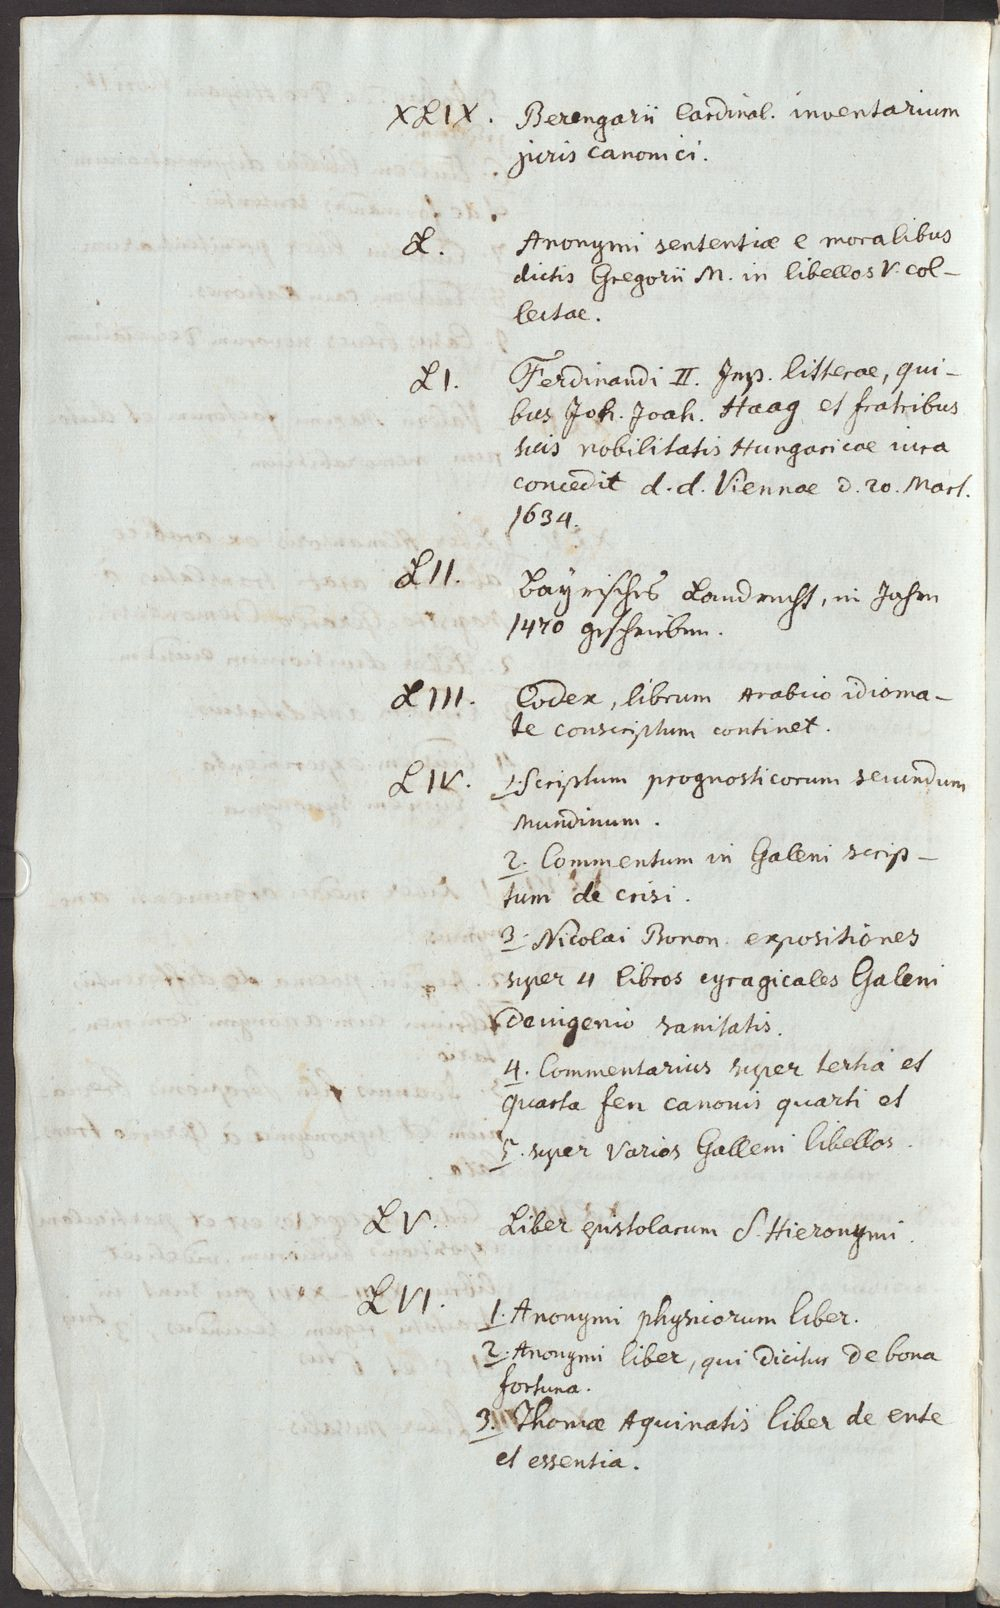 XLIX. Berengarii Cardinal. inventarium
juris canonici.
L. Anonymi sententiæ e moralibus
dictis Gregorii M. in libellos V. col-
lectae.
LI. Ferdinandi II. Imp. litterae, qui-
bus Joh. Joah. Haag et fratribus
suis nobilitatis Hungaricae iura
concedit d. d. Viennae d. 20. Mart.
1634.
LII. Bayrisches Landrecht, in Jahren
1470 geschrieben.
LIII. Codex, librum Arabico idioma-
te conscriptum continet.
LIV. 1. Scriptum prognosticorum secundum
Mundinum.
2. Commentum in Galeni scrip-
tum de crisi.
3. Nicolai Bonon. expositiones
super 4 libros cyragicales Galeni
de ingenio sanitatis.
4. Commentarius super tertia et
quarta fen canonis quarti et
5. super varios Galleni libellos.
LV. Liber epistolarum S. Hieronymi.
LVI. 1. Anonymi physicorum liber.
2. Anonymi liber, qui dicitur de bona
fortuna.
3. Thomæ Aquinatis liber de ente
et essentia.